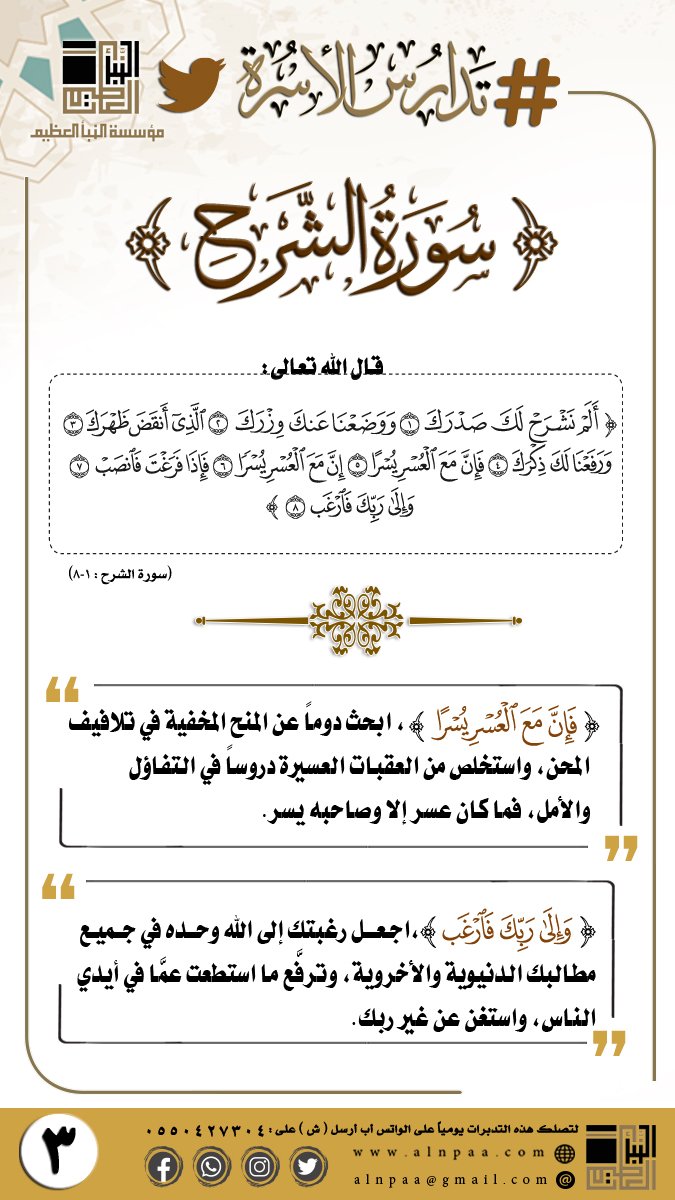 #تدارس_الأسرة
النبأ العظيم
مؤسسة النبأ العظيم
﴿ سُورَةُ الشَّرْحِ ﴾
قال الله تعالى:
﴿ أَلَمْ نَشْرَحْ لَكَ صَدْرَكَ ۝١ وَوَضَعْنَا عَنكَ وِزْرَكَ ۝٢ ٱلَّذِىٓ أَنقَضَ ظَهْرَكَ ۝٣
وَرَفَعْنَا لَكَ ذِكْرَكَ ۝٤ فَإِنَّ مَعَ ٱلْعُسْرِ يُسْرًا ۝٥ إِنَّ مَعَ ٱلْعُسْرِ يُسْرًا ۝٦ فَإِذَا فَرَغْتَ فَٱنصَبْ ۝٧
وَإِلَىٰ رَبِّكَ فَٱرْغَب ۝٨ ﴾
(سورة الشرح : ١-٨)
﴿ فَإِنَّ مَعَ ٱلْعُسْرِ يُسْرًا ﴾ ، ابحث دوماً عن المنح المخفية في تلافيف
المحن، واستخلص من العقبات العسيرة دروساً في التفاؤل
والأمل، فما كان عسر إلا وصاحبه يسر.
﴿ وَإِلَىٰ رَبِّكَ فَٱرْغَب ﴾،اجعل رغبتك إلى الله وحده في جميع
مطالبك الدنيوية والأخروية، وترفَّع ما استطعت عمَّا في أيدي
الناس، واستغن عن غير ربك.
لتصلك هذه التدبرات يومياً على الواتس أب أرسل ( ش ) على : ٠٥٥٠٤٢٧٣٠٤
www.alnpaa.com
alnpaa@gmail.com
٣
النبأ العظيم